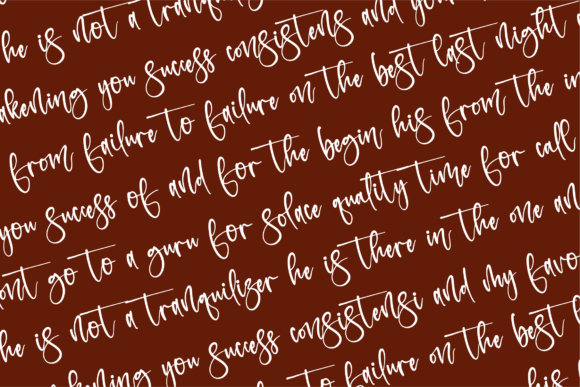 he is not a tranqu
akening you success consistens and you
from failure to failure on the best last night
you success of and for the begin his from the in
ont go to a guru for solace quality time for call
he is not a tranquilizer he is there in the one an
ening you success consistensi and my favo
to failure on the best
his